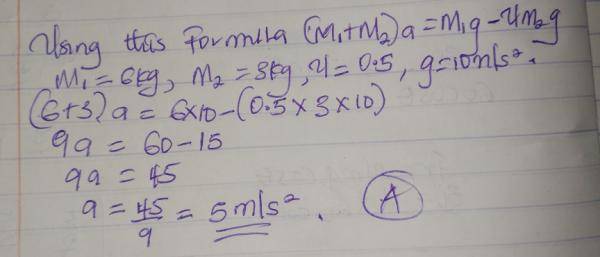 Using this Formula (M₁+M₂)a = M₁g - μM₂g
M₁ = 6kg, M₂ = 3kg, μ = 0.5, g = 10m/s².
(6+3)a = 6×10-(0.5×3×10)
9a = 60-15
9a = 45
a = 45/9 = 5m/s². (A)